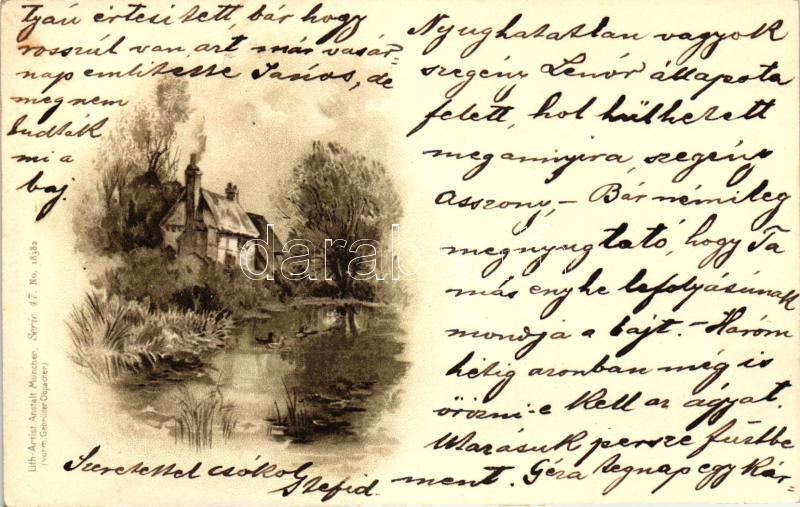 Nyughatatlan vagyok
szegény Lenór állapota
felett, hol hülhetett
meg annyira, szegény
asszony, – Bár némileg
megnyugtató, hogy Ta
más enyhe lefolyásúnak
mondja a bajt. – Három
hétig azonban még is
őrizni-e kell az ágyat.
Utazásuk persze füstbe
ment. Géza tegnap egy kár-
tyán értesített, bár hogy
rosszúl van, azt már vasár-
nap említette János, de
meg nem
tudták
mi a
baj.
Szeretettel csókol
Stefid.
Lith.-Artist. Anstalt München, Serie 47. No. 18382
(vorm. Gebrüder Obpacher)
darabanth